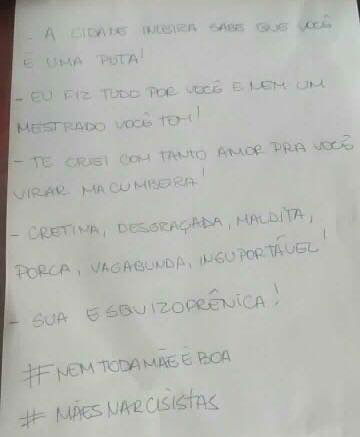 - A CIDADE INTEIRA SABE QUE VOCÊ
É UMA PUTA!
- EU FIZ TUDO POR VOCÊ E NEM UM
MESTRADO VOCÊ TEM!
- TE CRIEI COM TANTO AMOR PRA VOCÊ
VIRAR MACUMBEIRA!
- CRETINA, DESGRAÇADA, MALDITA,
PORCA, VAGABUNDA, INSUPORTÁVEL!
- SUA ESQUIZOPRÊNICA!
#NEMTODAMÃEÉBOA
#MÃESNARCISISTAS